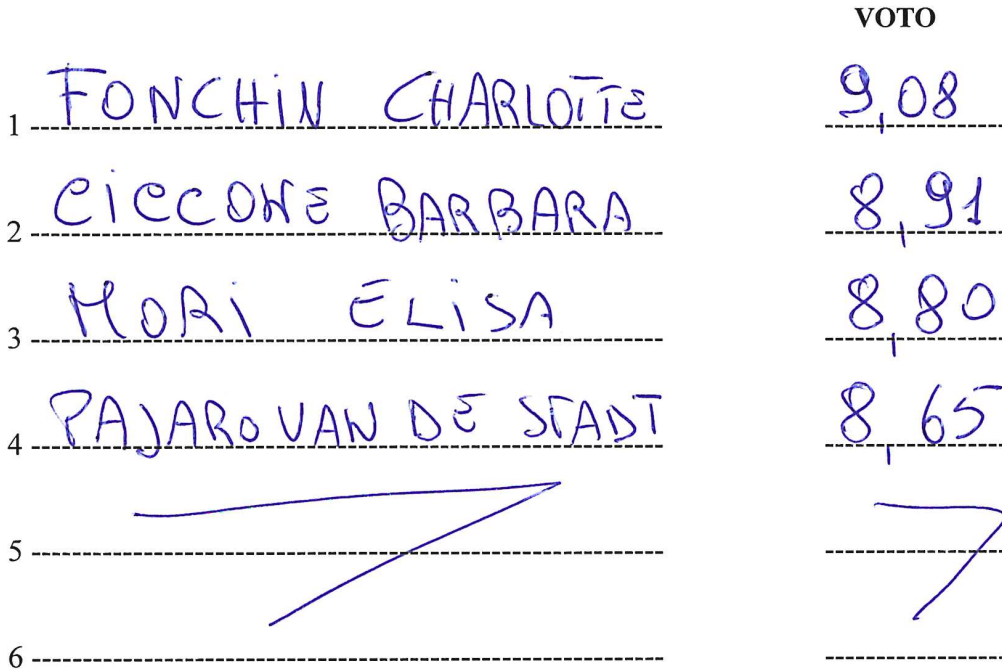 VOTO
1 FONCHIN CHARLOTTE 9,08
2 CICCONE BARBARA 8,91
3 MORI ELISA 8,80
4 PAJARO VAN DE STADT 8,65
5
6